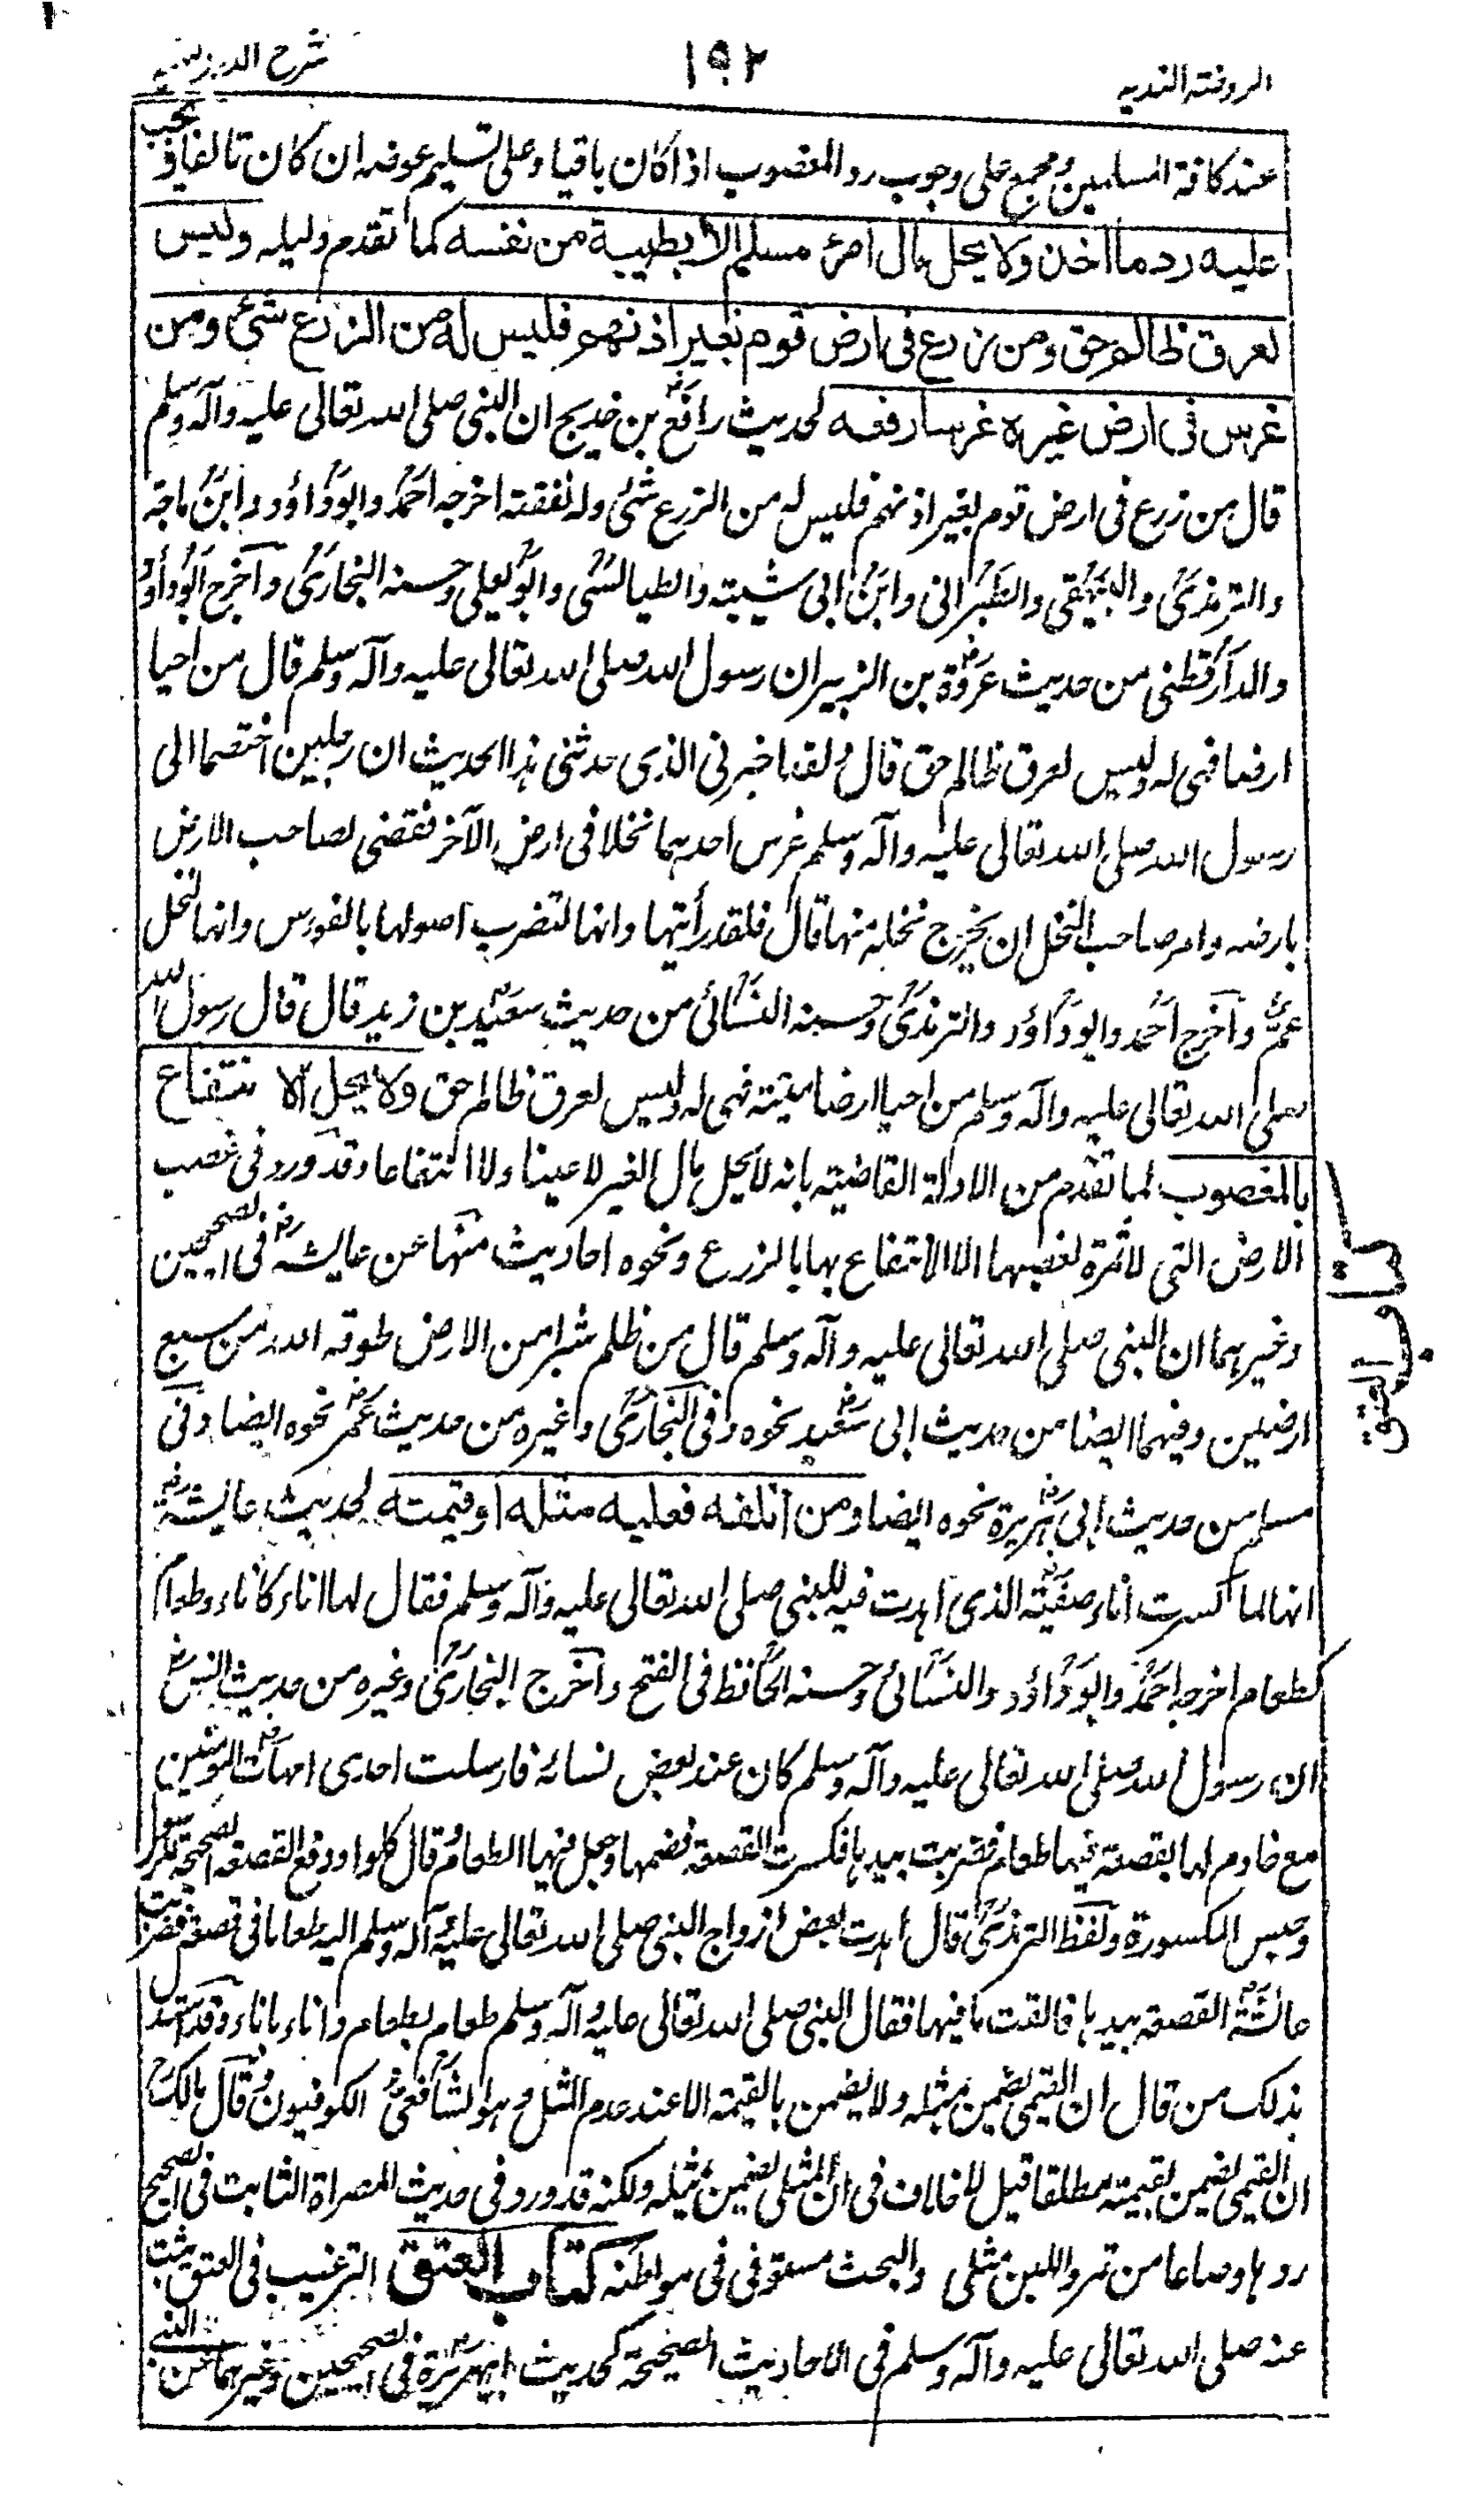 الروضة الندية ١٩٢ شرح الدرر البهية
عند كافة المسلمين ومجمع على وجوب رد المغصوب اذا كان باقيا وعلى تسليم عوضه ان كان تالفا ويجب
عليه رد ما اخذه ولا يحل مال امرئ مسلم الا بطيبة من نفسه كما تقدم دليله وليس
لعرق ظالم حق ومن زرع فى ارض قوم بغير اذنهم فليس له من الزرع شئ ومن
غرس فى ارض غيره غرسا رفعه لحديث رافع بن خديج ان النبى صلى الله تعالى عليه وآله وسلم
قال من زرع فى ارض قوم بغير اذنهم فليس له من الزرع شئ وله نفقته اخرجه احمد وابو داؤد وابن ماجة
والترمذى والبيهقى والطبرانى وابن ابى شيبته والطيالسى وابو يعلى وحسنه البخارى واخرج ابو داؤد
والدارقطنى من حديث عروة بن الزبير ان رسول الله صلى الله تعالى عليه وآله وسلم قال من احيا
ارضا فهى له وليس لعرق ظالم حق قال ولقد اخبرنى الذى حدثنى هذا الحديث ان رجلين اختصما الى
رسول الله صلى الله تعالى عليه وآله وسلم غرس احدهما نخلا فى ارض الآخر فقضى لصاحب الارض
بارضه وامر صاحب النخل ان يخرج نخله منها قال فلقد رأيتها وانها لتضرب اصولها بالفؤس وانها لنخل
عم واخرج احمد وابو داؤد والترمذى وحسنه النسائى من حديث سعيد بن زيد قال قال رسول الله
صلى الله تعالى عليه وآله وسلم من احيا ارضا ميتة فهى له وليس لعرق ظالم حق ولا يحل الانتفاع
بالمغصوب لما تقدم من الادلة القاضية بانه لا يحل مال الغير لا عينا ولا انتفاعا وقد ورد فى غصب
الارض التى لا ثمرة لغصبها الا الانتفاع بها بالزرع ونحوه احاديث منها عن عايشة فى الصحيحين
وغيرهما ان النبى صلى الله تعالى عليه وآله وسلم قال من ظلم شبرا من الارض طوقه الله من سبع
ارضين وفيهما ايضا من حديث ابى سعيد نحوه وفى البخارى وغيره من حديث عمر نحوه ايضا وفى
مسلم من حديث ابى هريرة نحوه ايضا ومن اتلفه فعليه مثله او قيمته لحديث عايشة
انها لما كسرت اناء صفية الذى اهدت فيه للنبى صلى الله تعالى عليه وآله وسلم فقال لها اناء كاناء وطعام
كطعام اخرجه احمد وابو داؤد والنسائى وحسنه الحافظ فى الفتح واخرج البخارى وغيره من حديث انس
ان رسول الله صلى الله تعالى عليه وآله وسلم كان عند بعض نسائه فارسلت احدى امهات المومنين
مع خادم لها بقصعة فيها طعام فضربت بيدها فكسرت القصعة فضمها وجعل فيها الطعام وقال كلوا ودفع القصعة الصحيحة للرسول
وحبس المكسورة ولفظ الترمذى قال اهدت بعض ازواج النبى صلى الله تعالى عليه وآله وسلم اليه طعاما فى قصعة فضربت
عائشة القصعة بيدها فالقت ما فيها فقال النبى صلى الله تعالى عليه وآله وسلم طعام بطعام واناء باناء وقد استدل
بذلك من قال ان القيمى يضمن بمثله ولا يضمن بالقيمة الا عند عدم المثل وهو الشافعى والكوفيون وقال مالك
ان القيمى يضمن بقيمته مطلقا قيل لا خلاف فى ان المثلى يضمن بمثله ولكنه قد ورد فى حديث المصراة الثابت فى الصحيح
ردها وصاعا من تمر واللبن مثلى والبحث مستوفى فى مواطنه كتاب العتق الترغيب فى العتق يثبت
عنه صلى الله تعالى عليه وآله وسلم فى الاحاديث الصحيحة كحديث ابيهريرة فى الصحيحين وغيرهما عن النبى
كتاب العتق